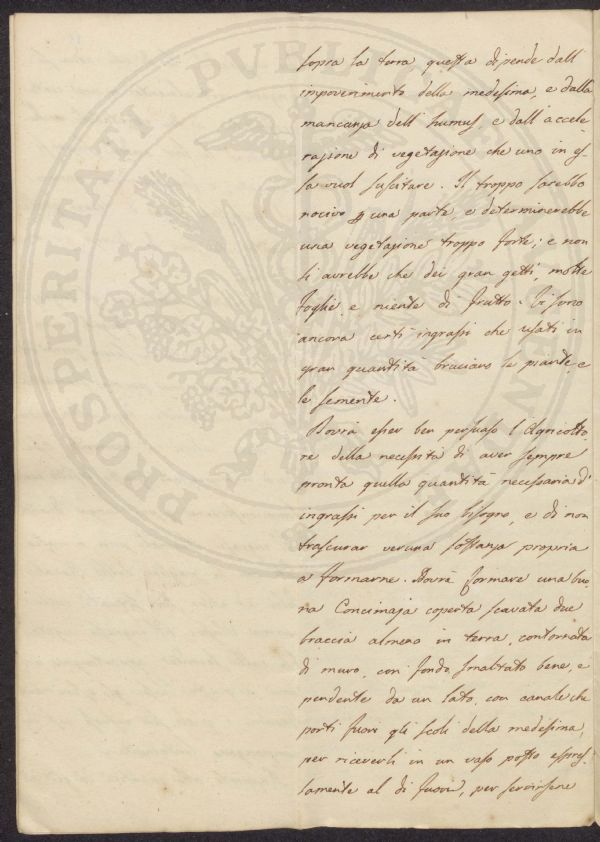 sopra la terra questa dipende dall'
impoverimento della medesima, e dalla
mancanza dell'humus e dall'accele
razione di vegetazione che uno in es-
sa vuol suscitare. Il troppo sarebbe
nocivo p una parte, e determinerebbe
una vegetazione troppo forte; e non
si avrebbe che dei gran getti, molte
foglie e niente di frutto. Vi sono
ancora certi ingrassi che usati in
gran quantità bruciano le piante e
le semente.
Dovrà esser ben persuaso l'Agricolto
re della necessità di aver sempre
pronta quella quantità necessaria d'
ingrassi per il suo bisogno, e di non
trascurar veruna sostanza propria
a formarne. Dovrà formare una buo
na Concimaja coperta scavata due
braccia almeno in terra, contornata
di muro, con fondo smaltato bene, e
pendente da un lato, con canale che
porti fuori gli scoli della medesima,
per riceverli in un vaso posto espres-
samente al di fuori, per servirsene
PROSPERITATI PUBLICAE